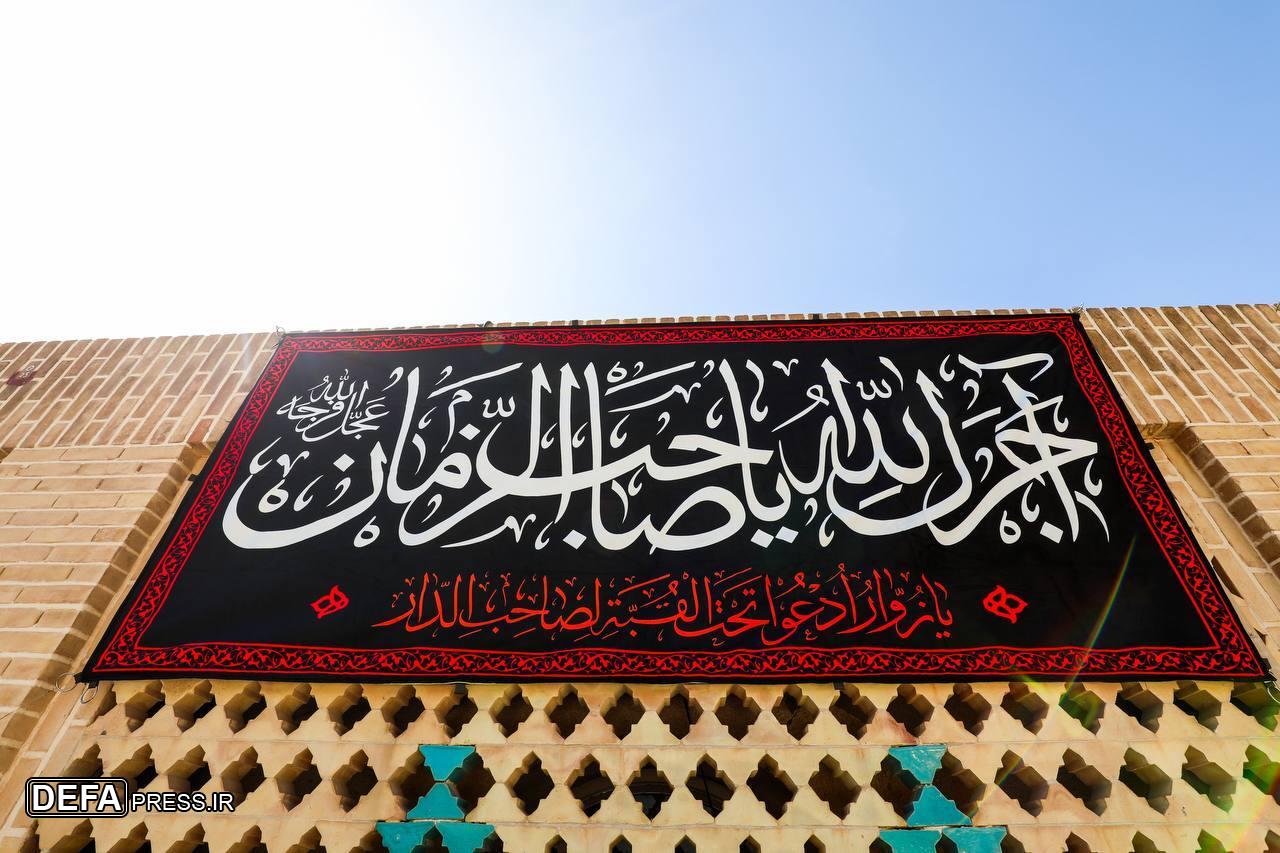 آجَرَكَ اللّٰه يا صاحَب الزّمان
عَجَّل اللهُ فرجه
يا زُوّار اُدعُوا تَحتَ القُبَّةِ لِصاحِبِ الدّار
DEFAPRESS.IR